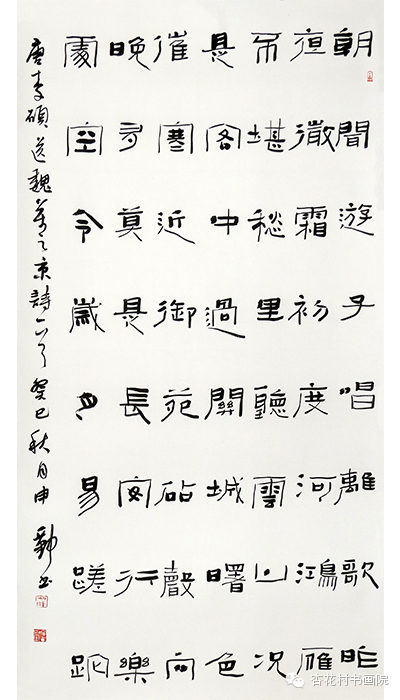 朝聞遊子唱離歌昨
夜微霜初度河鴻雁
不堪愁里聽雲山況
是客中過關城曙色
催寒近御苑砧聲向
晚多莫是長安行樂
處空令歲月易蹉跎
唐李碩送魏萬之京詩一首癸巳秋月申書
杏花村书画院